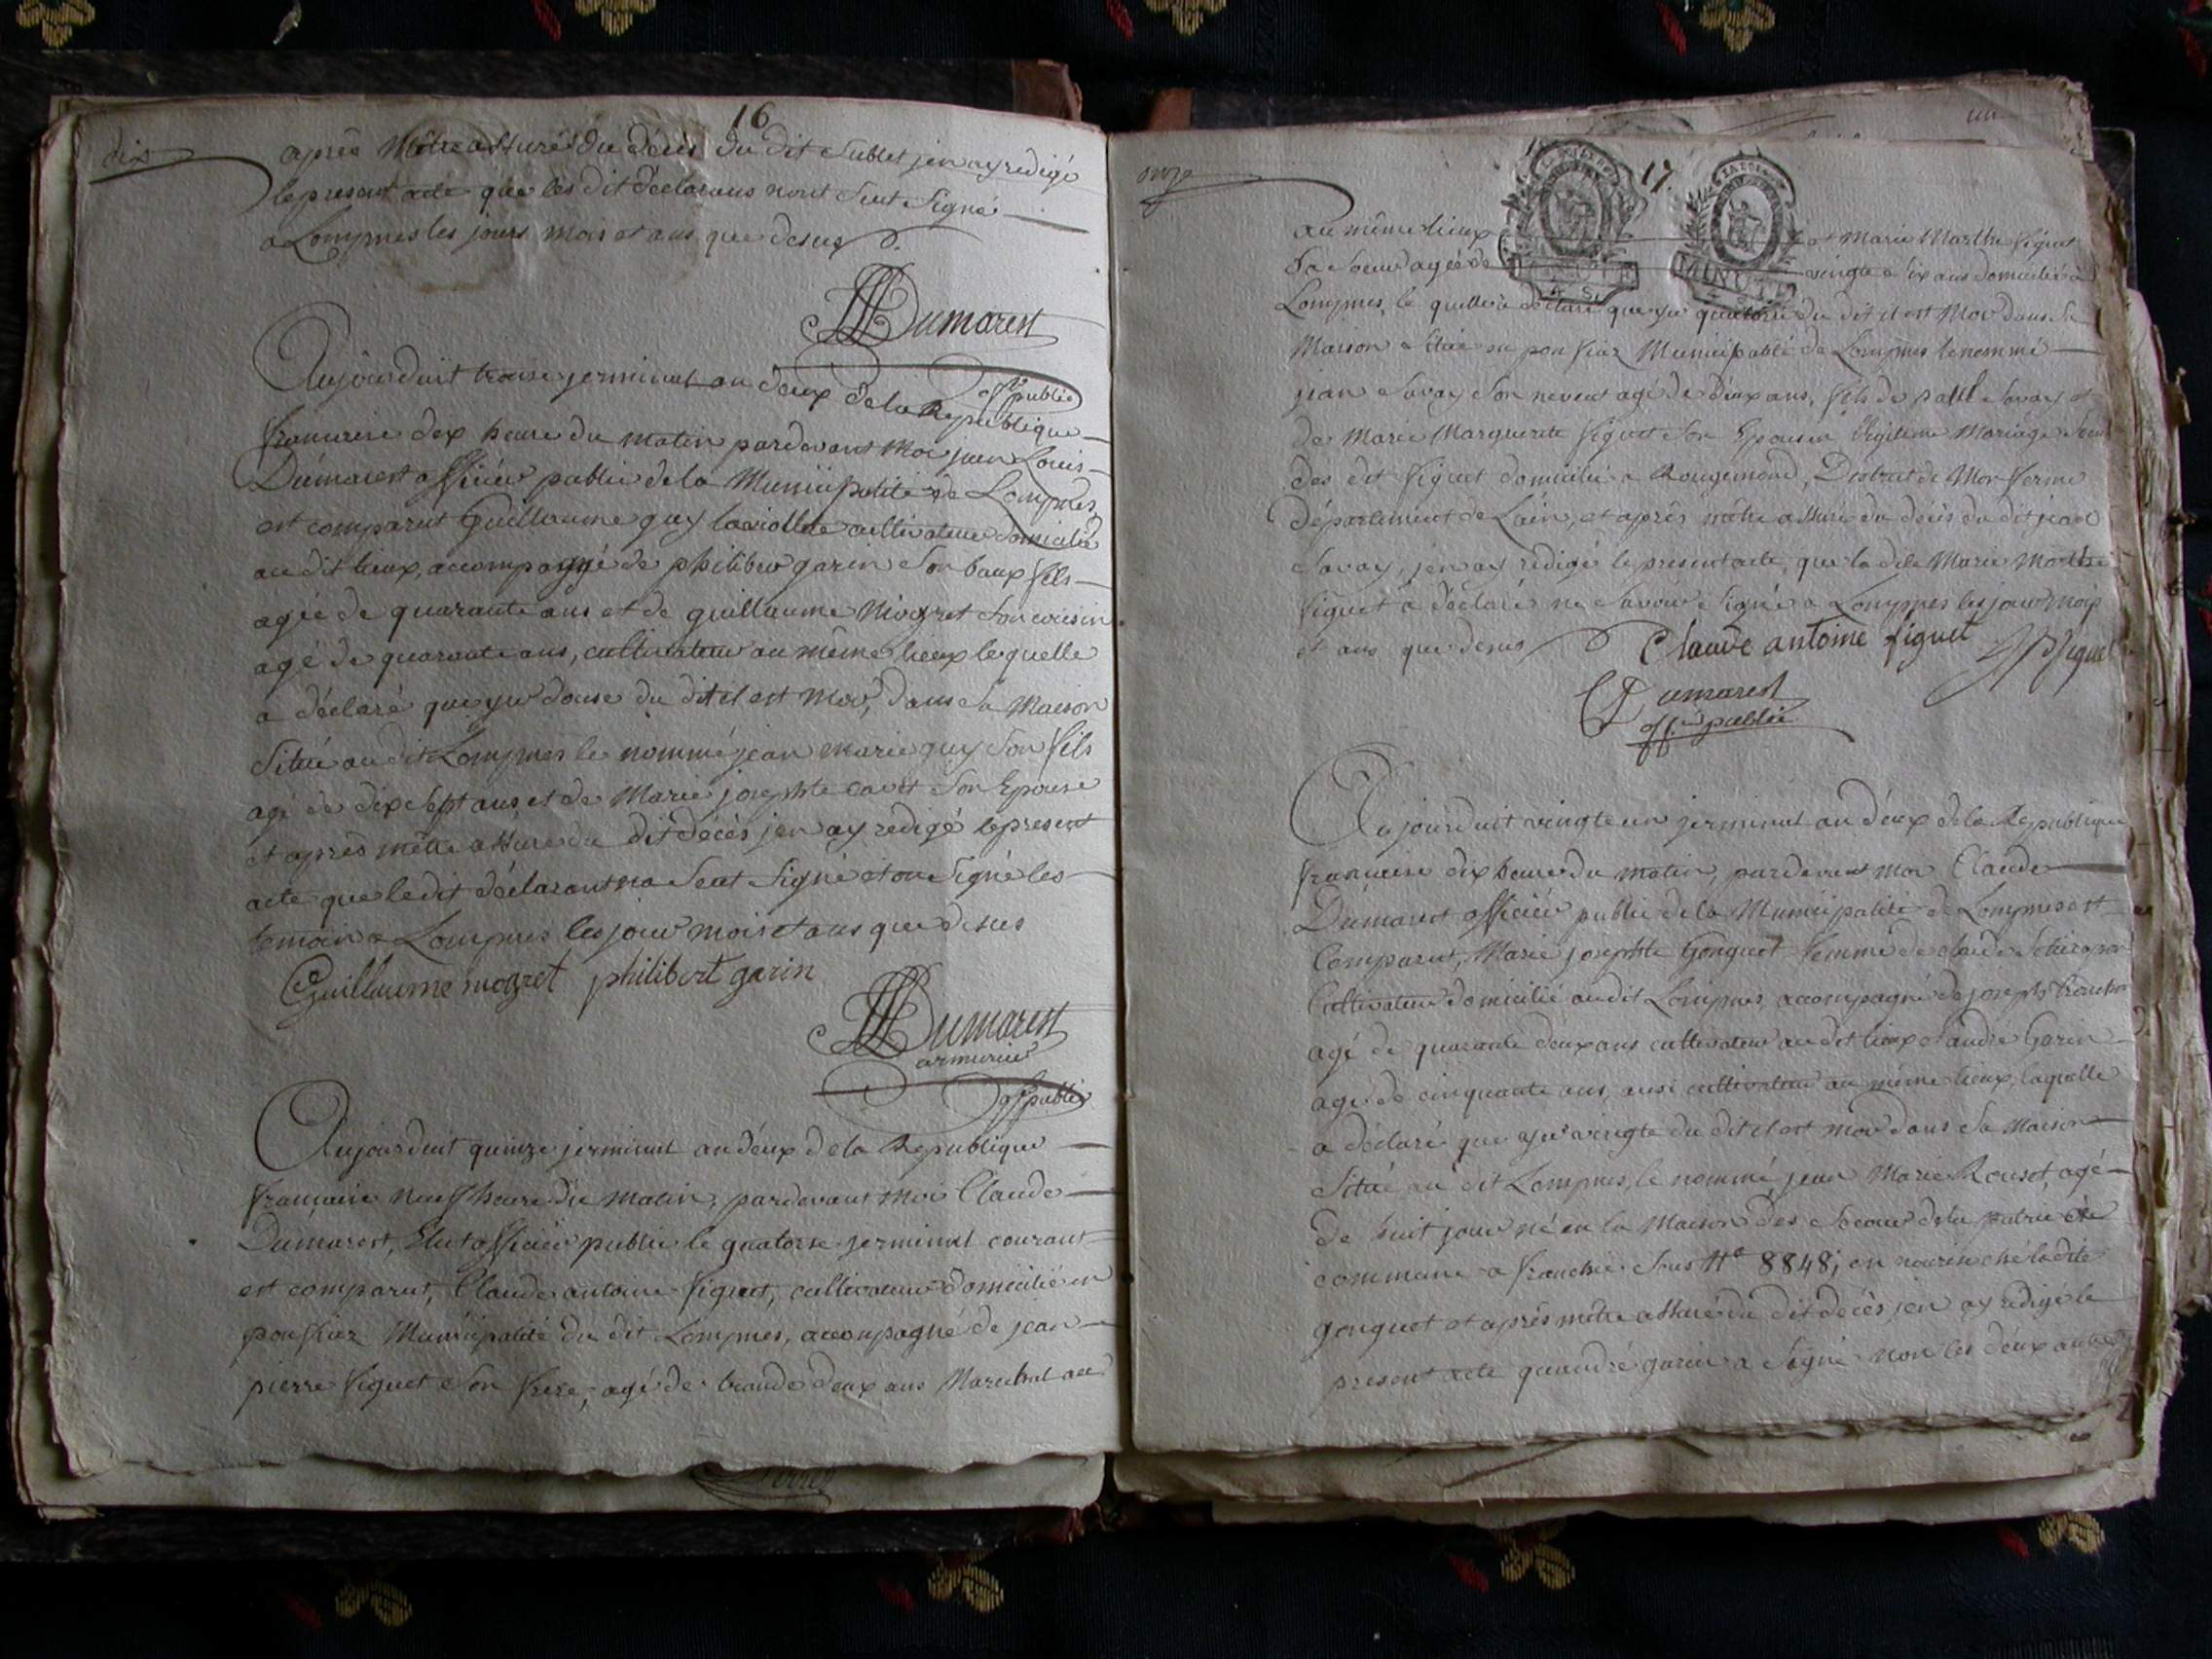 16
dix
après Mêtre assuré du décès du dit Sublet jen ay redigé
le present acte que les dit déclarans nont Seut Signé
a Lompnes les jours mois et ans que desus
JLDumarest
off. public
Aujourduit treise jerminal an deux de la Republique
francoise dix heure du matin pardevant Moi jean Louis
Dumarest officier public de la Municipalité de Lompnes
est comparut Guillaume guy laviollete cultivateur domicilié
au dit lieux, accompagné de philiber garin Son baux fils
agée de quarante ans et de guillaume Mogret Son cousin
agé de quarante ans, cultivateur au même lieux lequelle
a déclaré que yer douse du dit il est Mor, dans Sa Maison
Situé au dit Lompnes le nommé jean marie guy Son fils
agé de dix Sept ans et de Marie josephte Son Epouse
et après mêtre assure du dit décès jen ay redigé le present
acte que le dit déclarant na Seut Signé et on Signé les
temoin a Lompnes les jour mois et ans que desus
Guillaume mogret philibert garin
JLDumarest
armurier
off public
Aujourduit quinze jerminal an deux de la Republique
francaise neuf heure du matin, pardevant moi Claude
Dumarest, Elut officier public le quatorse jerminal courant
est comparut, Claude antoine figuet, cultivateur domicilié en
ponsiaz Municipalité du dit Lompnes, accompagné de jean
pierre figuet Son frere, agé de trande deux ans Marechal au
17
onze
au même lieux et Marie Marthe figuet
Sa Soeur agée de vingte Six ans domicilié à
Lompnes, le quelle a déclaré que yer quatorse du dit il est Mor dans Sa
Maison Situé en ponsiaz Municipalité de Lompnes le nommé
jean Savay Son neveut agé de deux ans, fils de Savay et
de Marie Marguerite figuet Son Epouse en legiteme Mariage Soeur
des dit figuet domicilié a Rougemond, District de Mon ferme
Département de Lain, et après mêtre assuré du décès du dit jean
Savay, jen ay redigé le present acte, que la dite Marie Marthe
figuet a déclaré ne Savoir Signé a Lompnes les jour mois
et ans que desus Claude antoine figuet JPfiguet
CDumarest
off. public
Aujourduit vingte un jerminal an deux de la Republique
francaise dix heure du matin, pardevant moi Claude
Dumarest officier public de la Municipalité de Lompnes est
Comparut, Marie josephte Gonguet femme de claude
Cultivateur domicilié au dit Lompnes, accompagné de joseph
agé de quarante deux ans cultivateur au dit lieux et andré Garin
agé de cinquante ans, ausi cultivateur au même lieux, laquelle
a déclaré que yer vingte du dit il est mor dans Sa Maison
Situé au dit Lompnes, le nommé jean Marie Rouset, agé
de huit jour né en la Maison des Secour de la patrie de
commune a franchie Sous N° 8848; en nourin ché la dite
gonguet et après mêtre assuré du dit décès jen ay redigé le
present acte quandré garin a Signé non les deux autre